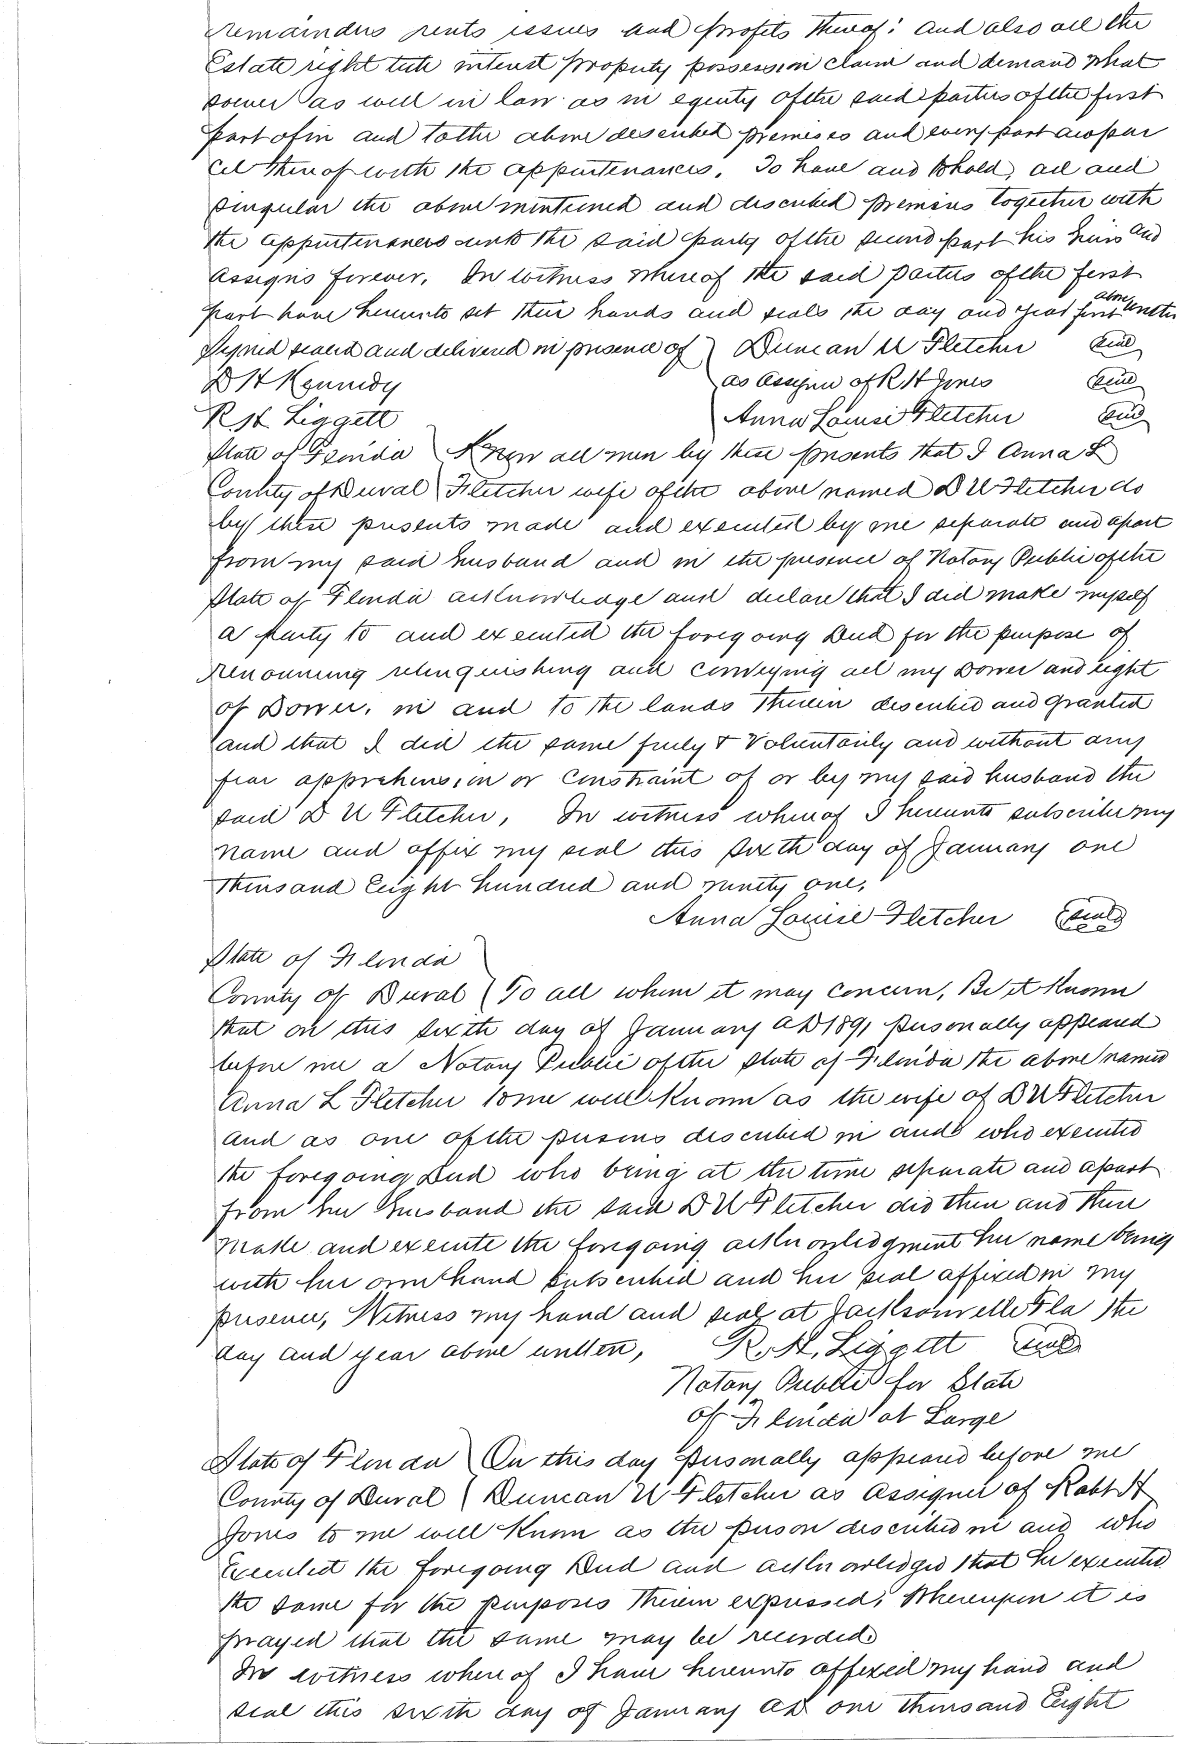 remainders rents issues and profits thereof: and also all the
Estate right title interest property possession claim and demand what
soever as well in law as in equity of the said parties of the first
part of in and to the above described premises and every part and par
cel thereof with the appurtenances. To have and to hold, all and
singular the above mentioned and described premises together with
the appurtenances unto the said party of the second part his heirs and
assigns forever. In witness whereof the said parties of the first
part have hereunto set their hands and seals the day and year first above written
Signed sealed and delivered in presence of ) Duncan U Fletcher Seal
D H Kennedy as assignee of R H Jones Seal
R H Liggett Anna Louise Fletcher Seal
State of Florida ) Know all men by these presents that I Anna L
County of Duval ( Fletcher wife of the above named D U Fletcher do
by these presents made and executed by me separate and apart
from my said husband and in the presence of Notary Public of the
State of Florida acknowledge and declare that I did make myself
a party to and executed the foregoing Deed for the purpose of
renouncing relinquishing and conveying all my Dower and right
of Dower, in and to the lands therein described and granted
and that I did the same freely & Voluntarily and without any
fear apprehension or constraint of or by my said husband the
said D U Fletcher, In witness whereof I hereunto subscribe my
name and affix my seal this sixth day of January one
thousand Eight hundred and ninety one.
Anna Louise Fletcher Seal
State of Florida )
County of Duval ( To all whom it may concern, Be it Known
that on this sixth day of January A D 1891 personally appeared
before me a Notary Public of the state of Florida the above named
Anna L Fletcher to me well Known as the wife of D U Fletcher
and as one of the persons described in and who executed
the foregoing Deed who being at the time separate and apart
from her husband the said D U Fletcher did then and there
make and execute the foregoing acknowledgment her name being
with her own hand subscribed and her seal affixed in my
presence, Witness my hand and seal at Jacksonville Fla the
day and year above written, R. H. Liggett Seal
Notary Public for State
of Florida at Large
State of Florida ) On this day personally appeared before me
County of Duval ( Duncan U Fletcher as Assignee of Robt H
Jones to me well Known as the person described in and who
Executed the foregoing Deed and acknowledged that he executed
the same for the purposes therein expressed, Whereupon it is
prayed that the same may be recorded
In witness whereof I have hereunto affixed my hand and
seal this sixth day of January A D one thousand Eight